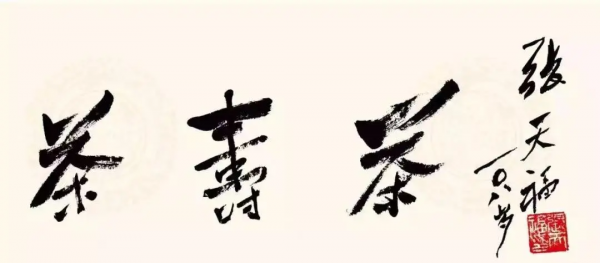 茶壽茶
張天福
一〇八岁